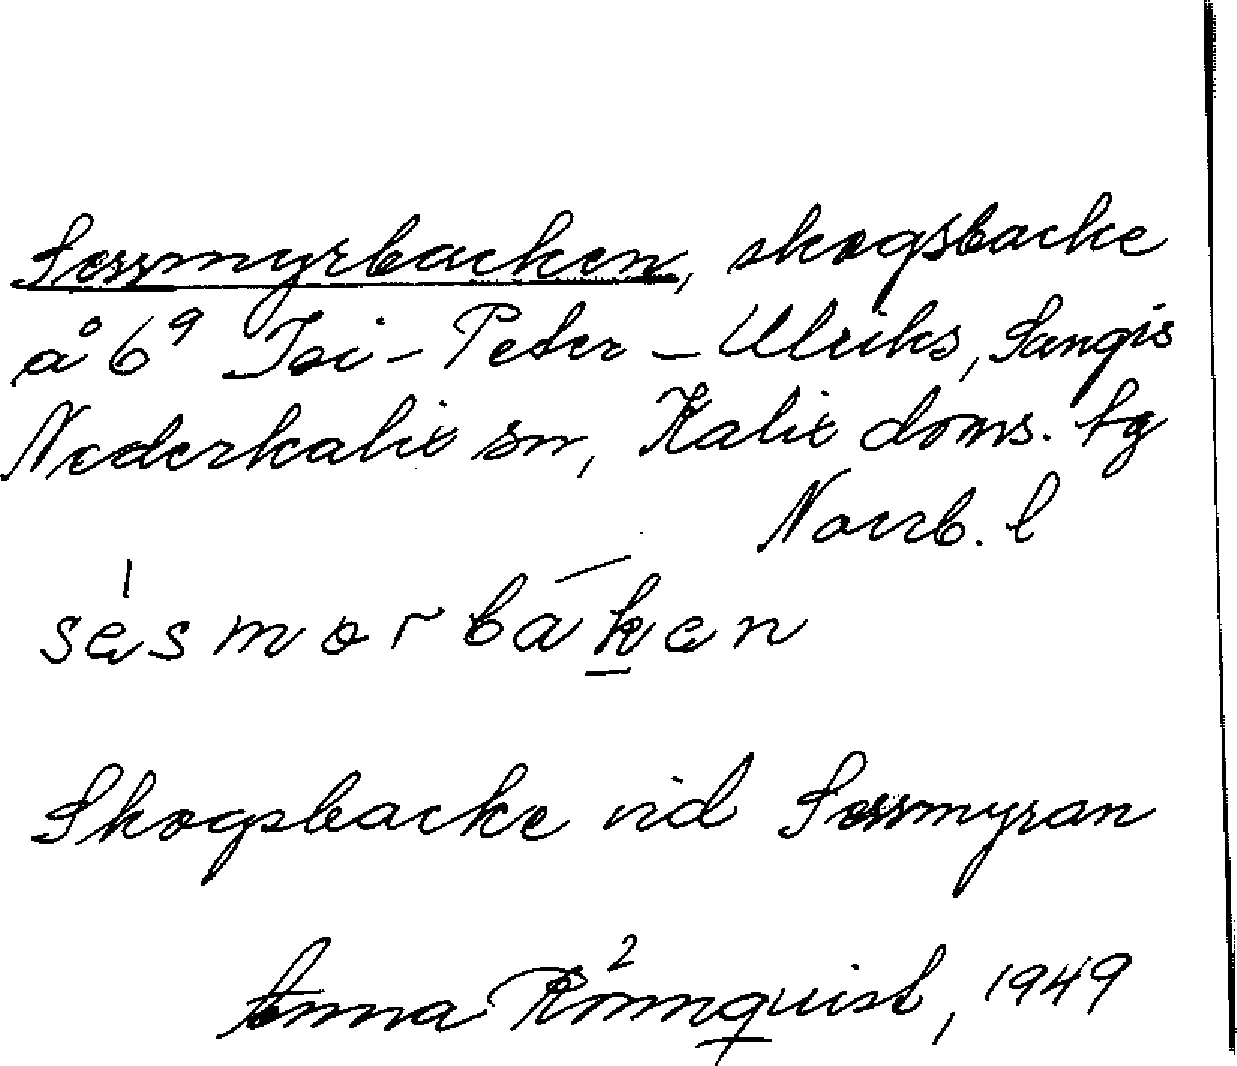 Sessmyrbacken, skogsbacke
å 6⁹ Isi-Peter-Ulriks, Sangis
Nederkalix sn, Kalix doms. tg
Norrb. l
sésmorbāken
Skogsbacke vid Sessmyran
Anna Rönnquist, 1949